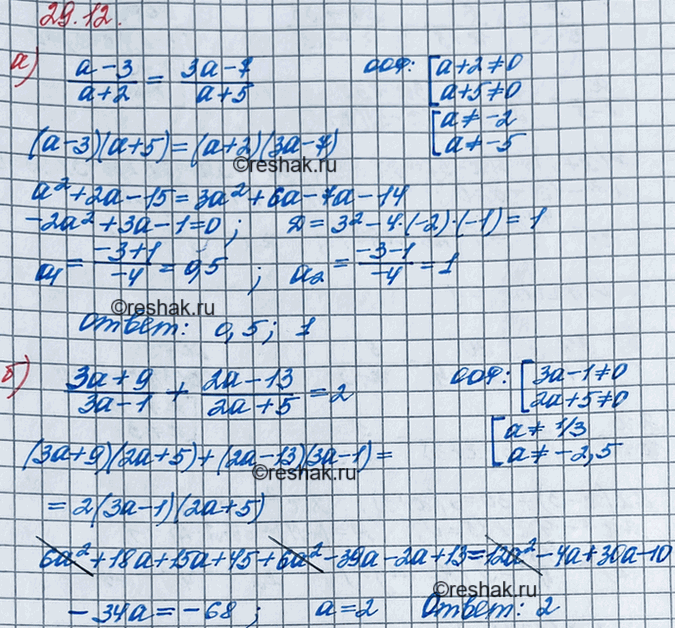 29.12.
а) (a-3)/(a+2) = (3a-7)/(a+5) ООФ: [a+2≠0
[a+5≠0
[a≠-2
[a≠-5
(a-3)(a+5)=(a+2)(3a-7)
©reshak.ru
a²+2a-15=3a²+6a-7a-14
-2a²+3a-1=0; D=3²-4·(-2)·(-1)=1
a₁=(-3+1)/(-4)=0,5; a₂=(-3-1)/(-4)=1
©reshak.ru
Ответ: 0,5; 1
б) (3a+9)/(3a-1) + (2a-13)/(2a+5) =2 ООФ: [3a-1≠0
[2a+5≠0
[a≠1/3
[a≠-2,5
(3a+9)(2a+5)+(2a-13)(3a-1)=
©reshak.ru
=2(3a-1)(2a+5)
6a²+18a+15a+45+6a²-39a-2a+13=12a²-4a+30a-10
©reshak.ru
-34a=-68; a=2 Ответ: 2